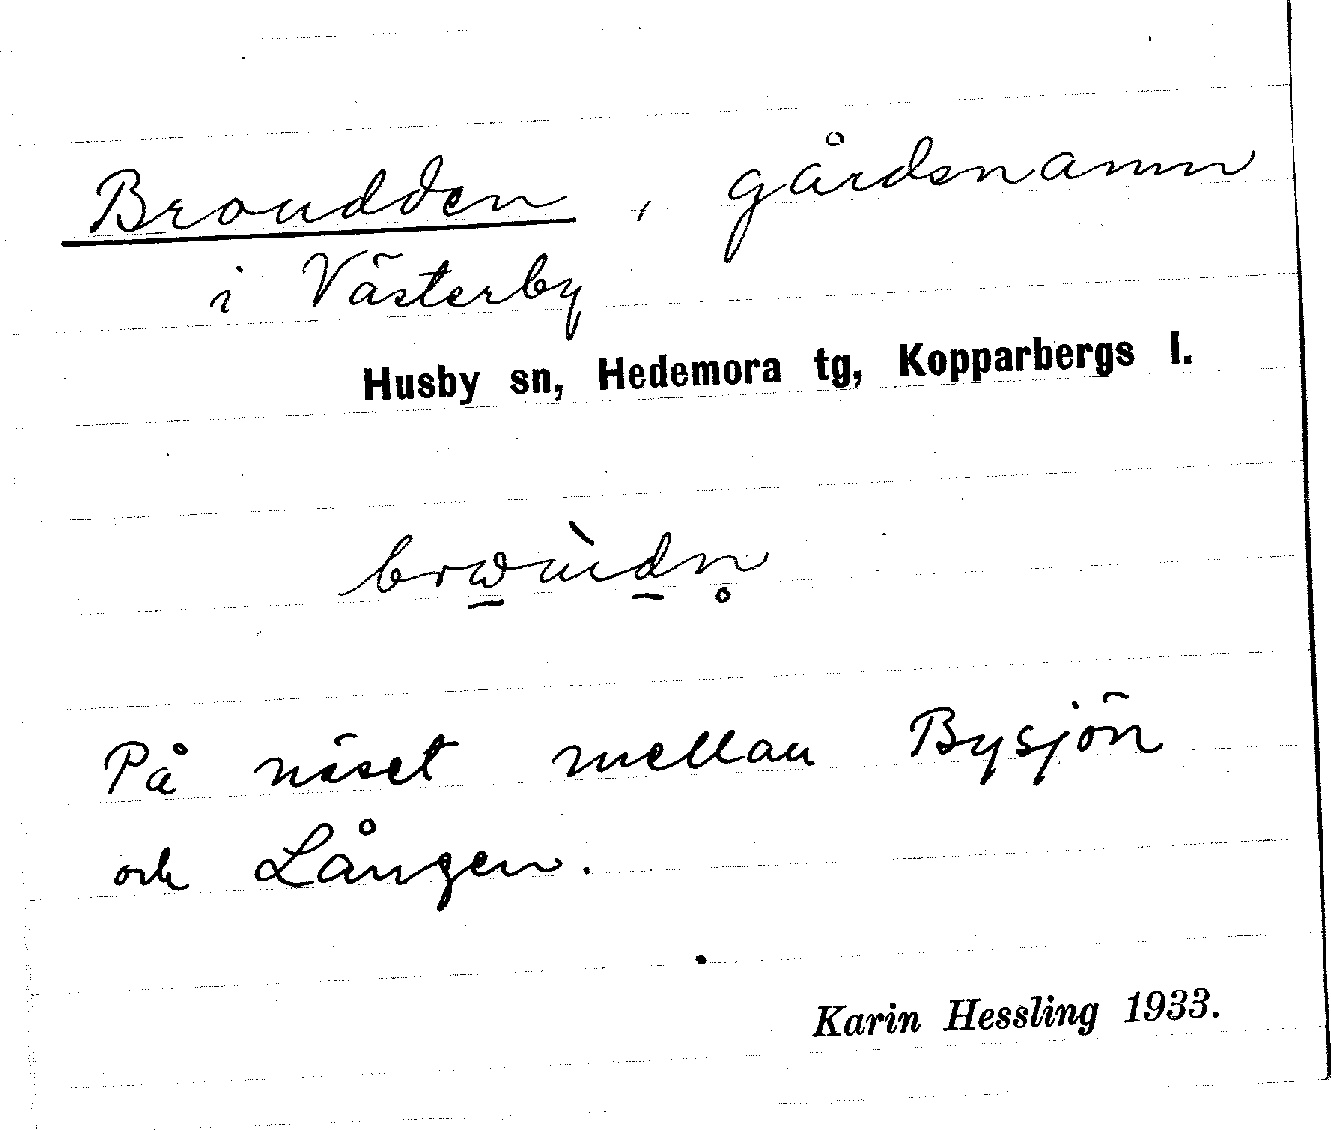 Broudden, gårdsnamn
i Västerby
Husby sn, Hedemora tg, Kopparbergs l.
På näset mellan Bysjön
och Lången.
Karin Hessling 1933.